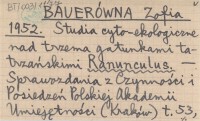 BAUERÓWNA Zofia
1952. Studia cyto-ekologiczne
nad trzema gatunkami ta-
trzańskimi Ranunculus. —
Sprawozdania z Czynności i
Posiedzeń Polskiej Akademii
Umiejętności (Kraków) t. 53,